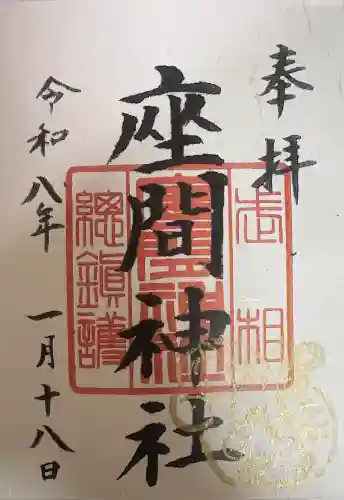 奉拝
座間神社
令和八年 一月十八日
相武
座間神社
總鎮護